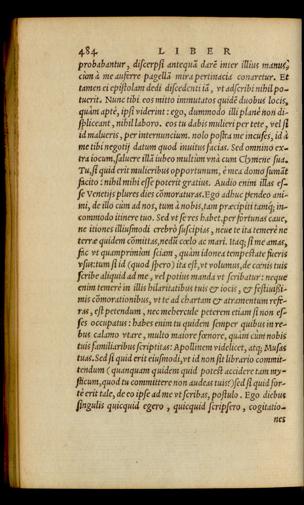 484 LIBER
probabantur, discerpsi antequā darē inter illius manus,
cùm à me auferre pagellā mira pertinacia conaretur. Et
tamen ei epistolam dedi discedenti iā, vt adscribi nihil po-
tuerit. Nunc tibi eos mitto immutatos quidē duobus locis,
quàm aptè, ipsi viderint: ego, dummodo illi planè non di-
spliceant, nihil laboro. eos tu dabis mulieri per tete, vel si
id malueris, per internuncium. nolo postra me incuses, id à
me tibi negotij datum quod inuitus facias. Sed omnino ex-
tra iocum, saluere illā iubeo multùm vnà cum Clymene sua.
Tu, si quid erit mulieribus opportunum, è mea domo sumāt
facito: nihil mihi esse poterit gratius. Audio enim illas es-
se Venetijs plures dies cōmoraturas. Ego adhuc pendeo ani-
mi, de illo cùm ad nos, tum à nobis, tam præcipiti tamq; in-
commodo itinere tuo. Sed vt se res habet, per fortunas caue,
ne itiones illiusmodi crebrò suscipias, neue te ita temerè ne
terræ quidem cōmittas, nedū cœlo ac mari. Itaq; si me amas,
fac vt quamprimùm sciam, quàm idonea tempestate fueris
vsus: tum si id (quod spero) ita est, vt volumus, de cœnis tuis
scribe aliquid ad me, vel potius manda vt scribatur: neque
enim temerè in illis hilaritatibus tuis & iocis, & festiuissi-
mis cōmorationibus, vt te ad chartam & atramentum refe-
ras, est petendum, nec mehercule peterem etiam si non es-
ses occupatus: habes enim tu quidem semper quibus in re-
bus calamo vtare, multo maiore fœnore, quàm cùm nobis
tuis familiaribus scriptitas: Apollinem videlicet, atq; Musas
tuas. Sed si quid erit eiusmodi, vt id non sit librario commit-
tendum (quanquam quidem quid potest accidere tam my-
sticum, quod tu committere non audeas tuis?) sed si quid for-
tè erit tale, de eo ipse ad me vt scribas, postulo. Ego diebus
singulis quicquid egero, quicquid scripsero, cogitatio-
nes